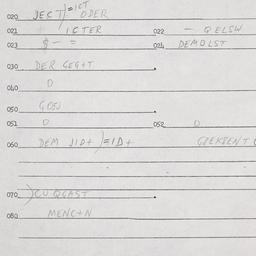 020 JECT)=ICT ODER
021 ICTER 022 — QELSW
023 $ — = 024 DEMDLST
030 DER GEG+T .
040 D
050 GOSU .
051 D 052 D
060 DEM JID+)=ID+
070 )CU QGAST .
080 MENC+N